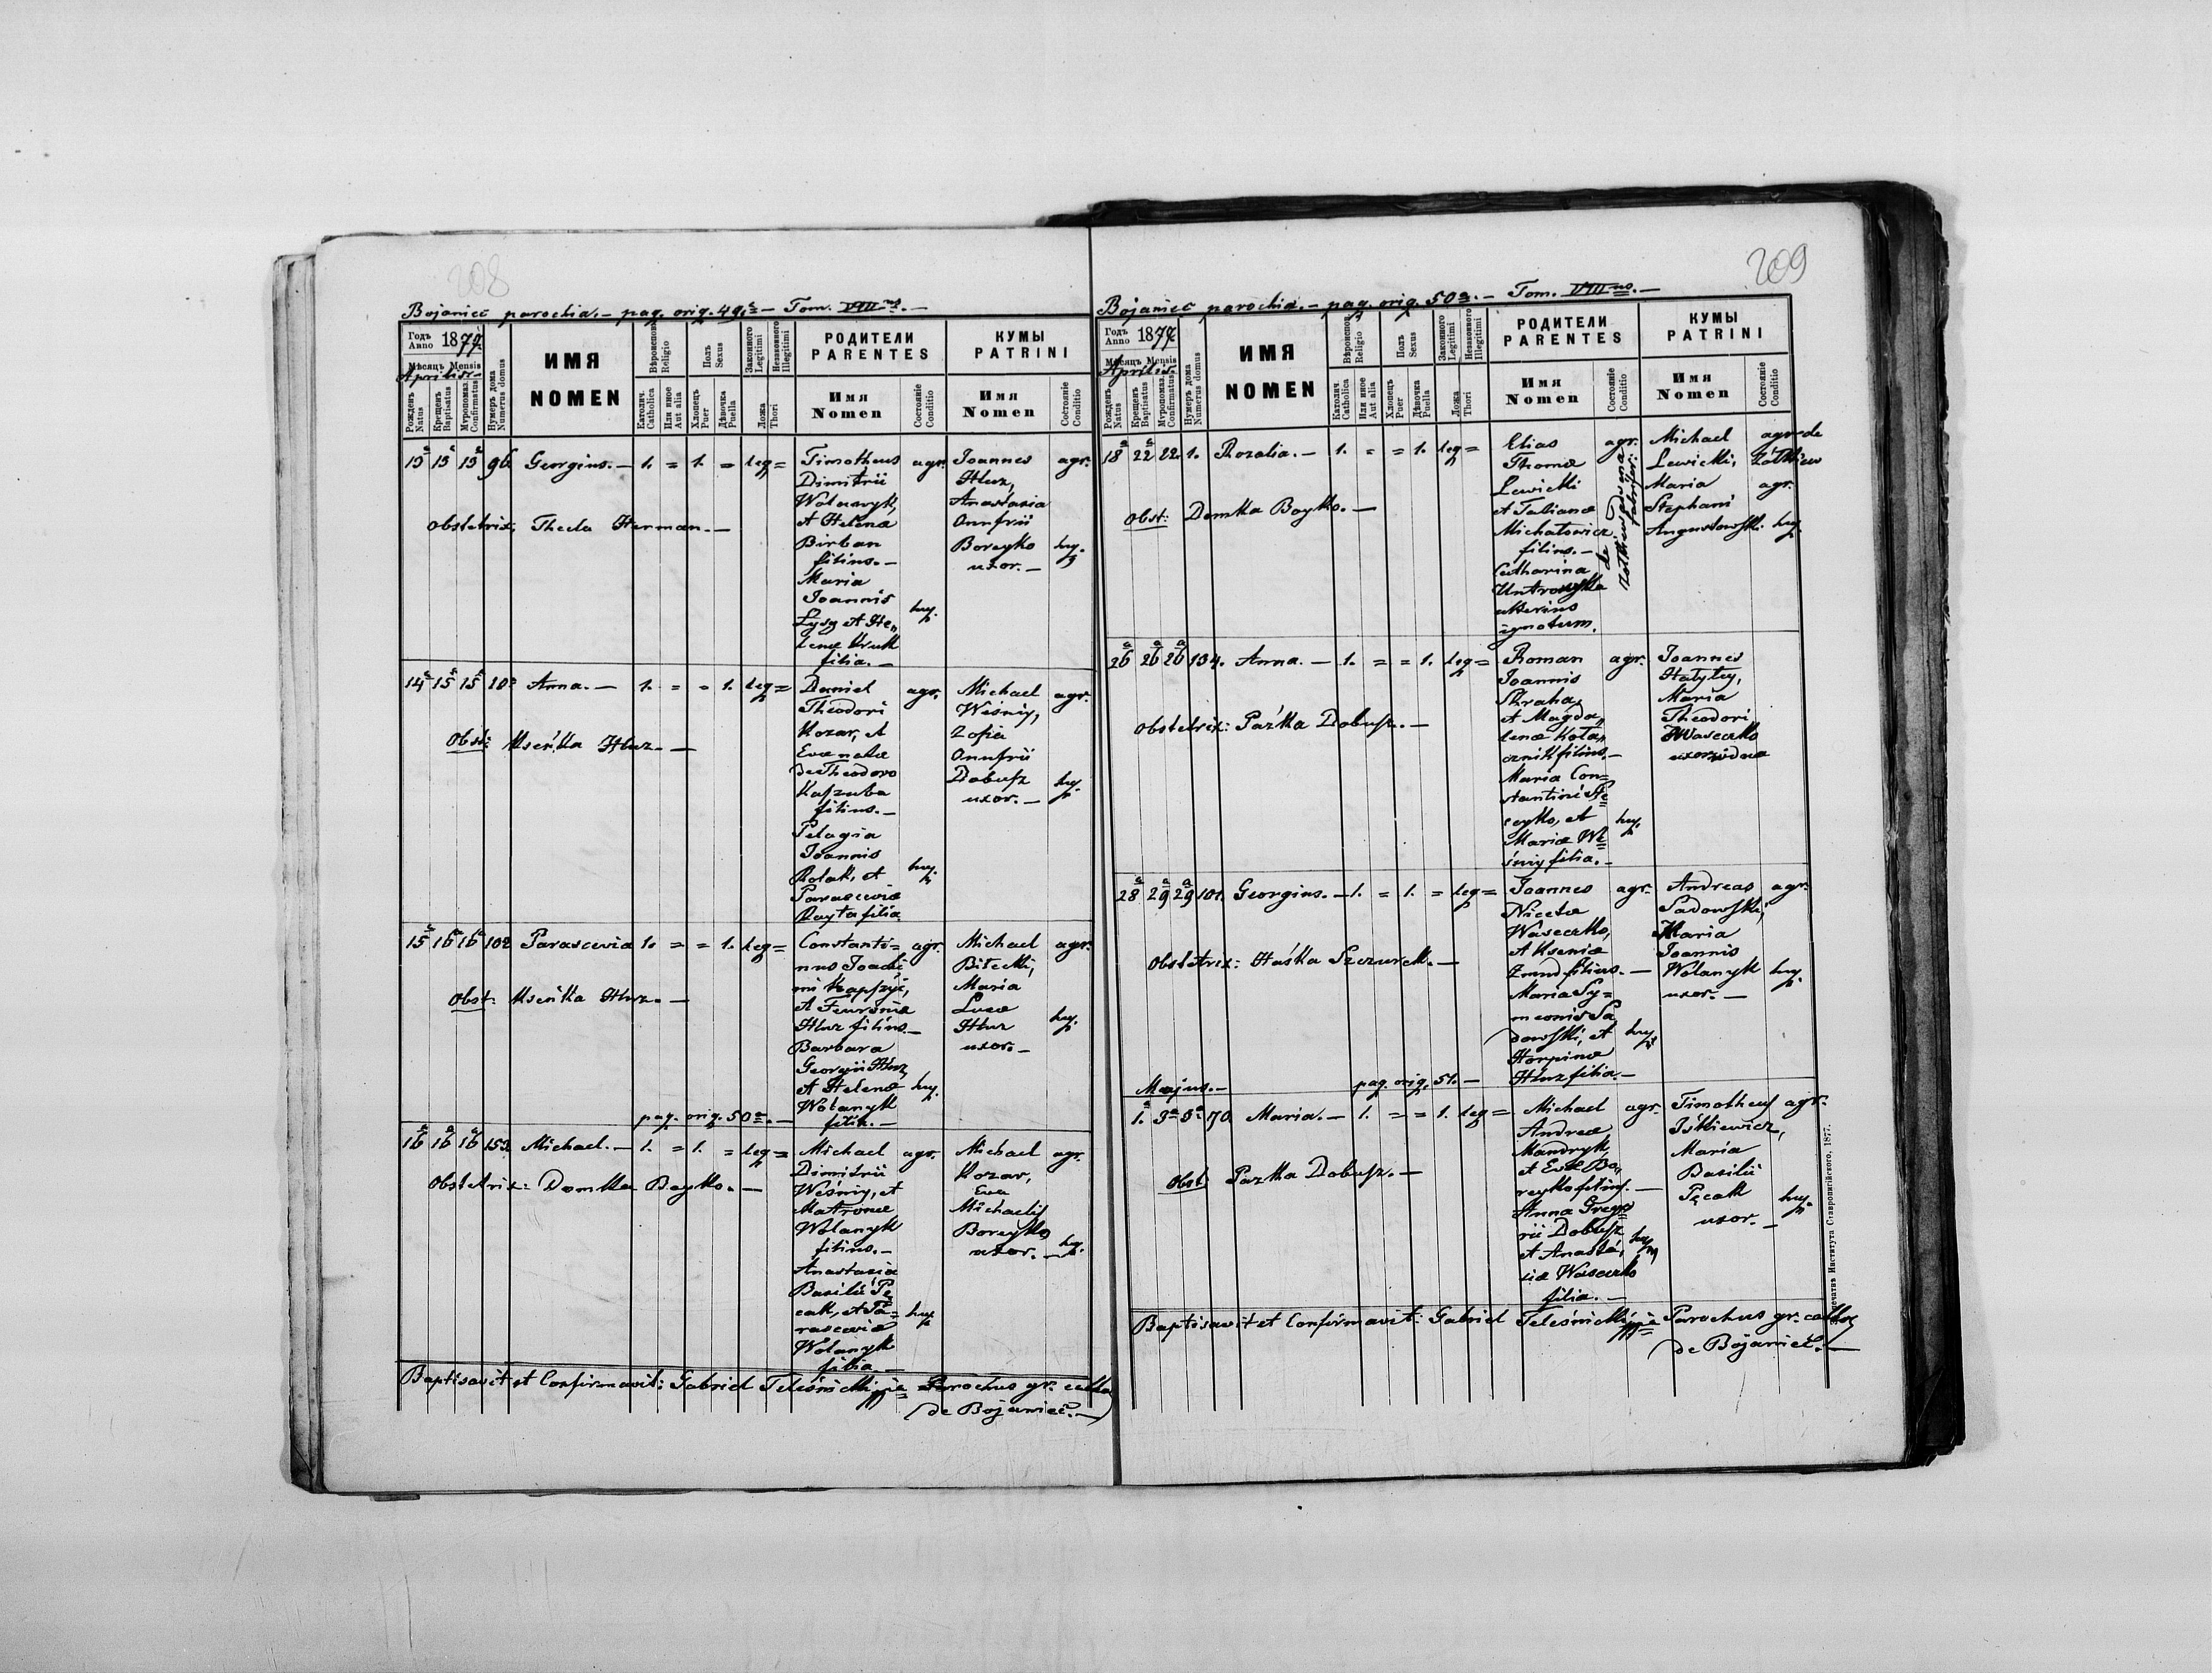 208
Bojaniec parochia. – pag. orig. 49.ª – Tom. VIII us. –
Годъ Anno 1877.
Мѣсяцъ Mensis
Aprilis. –
Рожденъ Natus
Крещенъ Baptisatus
Мѵропомаз. Confirmatus
Нумеръ дома Numerus domus
ИМЯ
NOMEN
Вѣроисповѣд. Religio
Католич. Catholica
Или иное Aut alia
Полъ Sexus
Хлопецъ Puer
Дѣвочка Puella
Законного Legitimi
Незаконного Illegitimi
Ложа Thori
РОДИТЕЛИ
PARENTES
Имя
Nomen
Состояніе Conditio
КУМЫ
PATRINI
Имя
Nomen
Состояніе Conditio
15 15 96 Georgius. – 1. = 1. = leg =
obstetrix: Thecla Herman. –
Timotheus agr.
Dimitrii
Wolanyk,
et Helenæ
Birban
filius. –
Maria
Joannis
Łysy et He„
lenæ Kruk
filia. –
huj.
Joannes agr.
Hluz,
Anastasia
Onufrii
Boreyko huj.
uxor. –
14 15 15 Anna. – 1. = = 1. leg =
Obst: Kseńka Hluz. –
Daniel agr.
Theodori
Kozar, et
Eva natæ
de Theodoro
Kaszuba
filius. –
Pelagia
Joannis
Rolak, et huj.
Parasceviæ
filia
Michael agr.
Wiśniy,
Zofia
Onufrii
Dobusz huj.
uxor. –
15 16 16 102 Parascevia 1. = = 1. leg =
Obst: Kseńka Hluz. –
Constanti= agr.
nus Joachi
mi Kapszyi,
et Feuroniæ
Hluz filius. –
Barbara
Georgii Hluz,
et Helenæ huj.
Wolanyk
filia. –
Michael agr.
Bilecki,
Maria
Lucæ
Hluz huj.
uxor. –
pag. orig. 50ª. –
16 16 16 153 Michael. – 1. = 1. = leg =
Obstetrix: Domka Boyko. –
Michael agr.
Dimitrii
Wiśniy, et
Matronæ
Wolanyk
filius. –
Anastasia
Basilii Pę
cak, et Pa= huj.
rasceviæ
Wolanyk
filia. –
Michael agr.
Kozar,
Eva
Michaelis
Boreyko
uxor. – huj.
Baptisavit et Confirmavit: Gabriel Teleśnicki Parochus gr. cath.
de Bojaniec. –
209
Bojaniec parochia. – pag. orig. 50ª. – Tom. VIII us. –
Годъ Anno 1877.
Мѣсяцъ Mensis
Aprilis. –
Рожденъ Natus
Крещенъ Baptisatus
Мѵропомаз. Confirmatus
Нумеръ дома Numerus domus
ИМЯ
NOMEN
Вѣроисповѣд. Religio
Католич. Catholica
Или иное Aut alia
Полъ Sexus
Хлопецъ Puer
Дѣвочка Puella
Законного Legitimi
Незаконного Illegitimi
Ложа Thori
РОДИТЕЛИ
PARENTES
Имя
Nomen
Состояніе Conditio
КУМЫ
PATRINI
Имя
Nomen
Состояніе Conditio
18 22 22. 1. Rozalia. – 1. = = 1. leg =
Obst: Domka Boyko. –
Elias agr.
Thomæ
Lewicki
et Tatianæ
Michałowicz
filius. –
Catharina
ulterius
ignotum.
Michael agr. de
Lewicki, Żółkiew
Maria agr.
Stephani
Augustowski. huj.
26 26 26 134. Anna. – 1. = = 1. leg =
Obstetrix: Paźka Dobusz. –
Roman agr.
Joannis
Skraha,
et Magda„
lenæ Koła„
cznik filius. –
Maria Con=
stantini
et huj.
Mariæ Wi=
śniy filia. –
Joannes
Hałytey,
Maria
Theodori
Waseczko
28 29 29 101. Georgius. – 1. = 1. = leg =
Obstetrix: Haśka Szczurek. –
Joannes agr.
Nicetæ
Waseczko,
et Kseniæ
Zmud filius. –
Maria Sy=
meonis Sa
dowski, et huj.
Horpinæ
Hluz filia. –
Andreas agr.
Sadowski,
Maria
Joannis
Wolanyk huj.
uxor. –
Majus. – pag. orig. 51. –
1. 3 3 70 Maria. – 1. = = 1. leg =
Obst: Pazka Dobusz. –
Michael agr.
Andreæ
Mandryk,
et Evæ Bo„
reyko filius. –
Anna Grego
rii Dobusz
et Anasta„ huj.
siæ Waseczko
filia. –
Timotheus agr.
Iśkiewicz,
Maria
Basilii
Pęcak huj.
uxor. –
Baptisavit et Confirmavit: Gabriel Teleśnicki Parochus gr. cath.
de Bojaniec. –
печатня Института Ставропигійского, 1877.